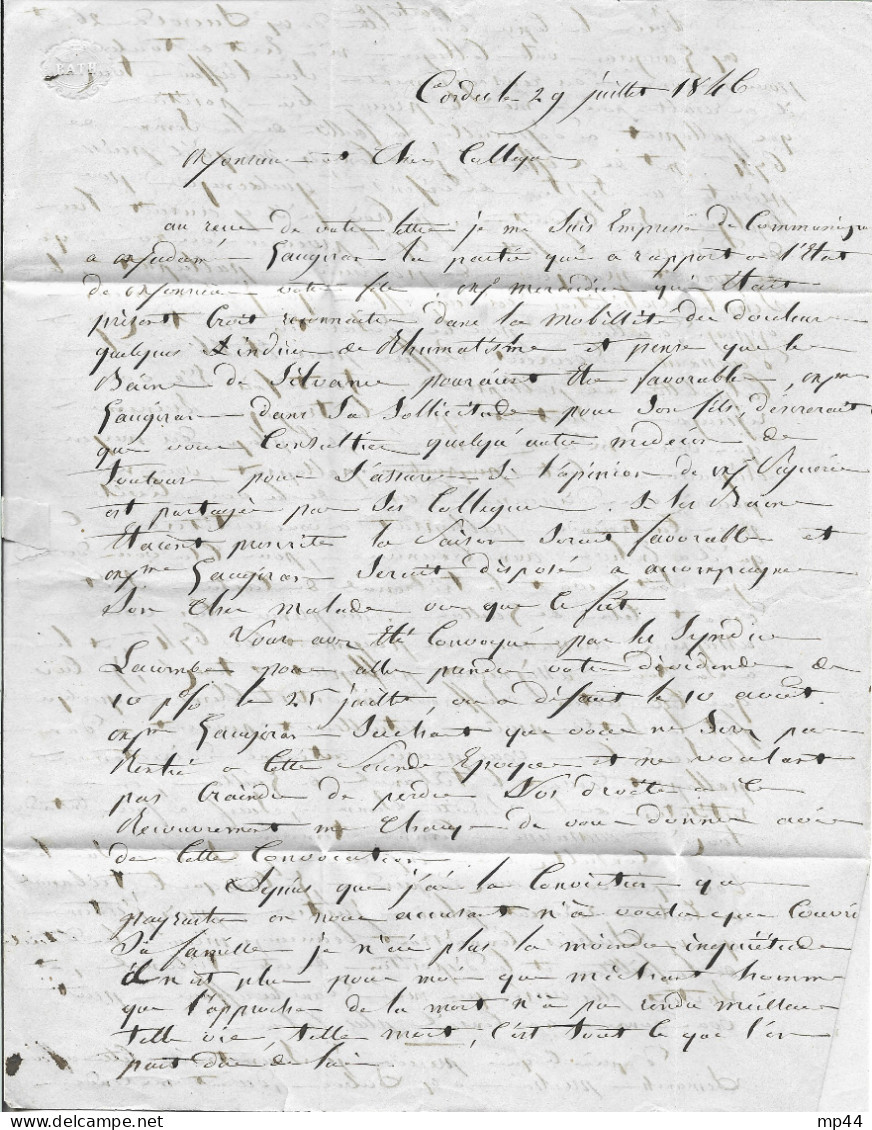 BATH
Cordes le 29 juillet 1846
Monsieur et Cher Collegue
au recu de votre lettre je me suis Empressé de Communiquer
a Madame Gaugiran la partie qui a rapport a l'État
de Monsieur votre fils, Mr qui était
présent Croit reconnaitre dans la mobilité des douleurs
quelques indices de Rhumatisme et pense que les
Bains de Silvanes pouraient être favorables, Mme
Gaugiran dans sa sollicitude pour son fils, désirerait
que vous Consultiez quelqu'autre medecin de
Toulouse pour s'assurer si l'opinion de Mr Viguerie
est partagée par ses Collegues. Si les Bains
étaient prescrits la saison serait favorable et
Mme Gaugiran serait disposé a accompagner
son Cher malade ou que ce fut
Vous avez été Convoqué par les Syndics
Lacombe pour aller prendre votre dividende de
10 p% le 25 juillet, ou a défaut le 10 août.
Mme Gaugiran Sachant que vous ne serez pas
Rentré a cette seconde Epoque et ne voulant
pas Craindre de perdre Vos droits a ce
Recouvrement me Charge de vous donner avis
de cette Convocation
Depuis que j'ai la Conviction que
en nous accusant n'a voulu que Couvrir
sa famille je n'ai plus la moindre inquiétude
il n'est plus pour moi que méchant homme
que l'approche de la mort n'a pas rendu meilleur
telle vie, telle mort, c'est tout ce que l'on
peut dire de lui
mp44